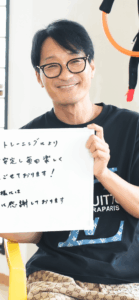 トレーニングにより
安定し毎日楽しく
すごせております!
様には
感謝しております
RUIT
RAPARIS